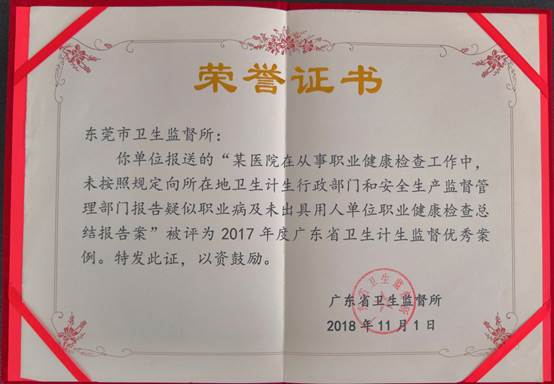 荣誉证书
东莞市卫生监督所：
你单位报送的“某医院在从事职业健康检查工作中，
未按照规定向所在地卫生计生行政部门和安全生产监督管
理部门报告疑似职业病及未出具用人单位职业健康检查总
结报告案”被评为 2017 年度广东省卫生计生监督优秀案
例。特发此证，以资鼓励。
广东省卫生监督所
2018 年 11 月 1 日